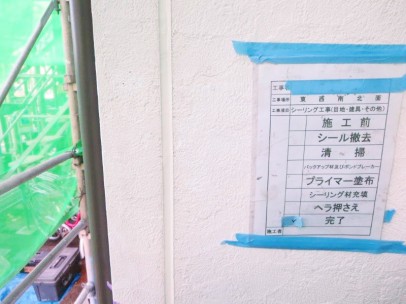 工事名
工事場所 東 西 南 北 面
工事項目 シーリング工事(目地・建具・その他)
施工前
シール撤去
清 掃
バックアップ材及びボンドブレーカー
プライマー塗布
シーリング材充填
ヘラ押さえ
完了
施工者